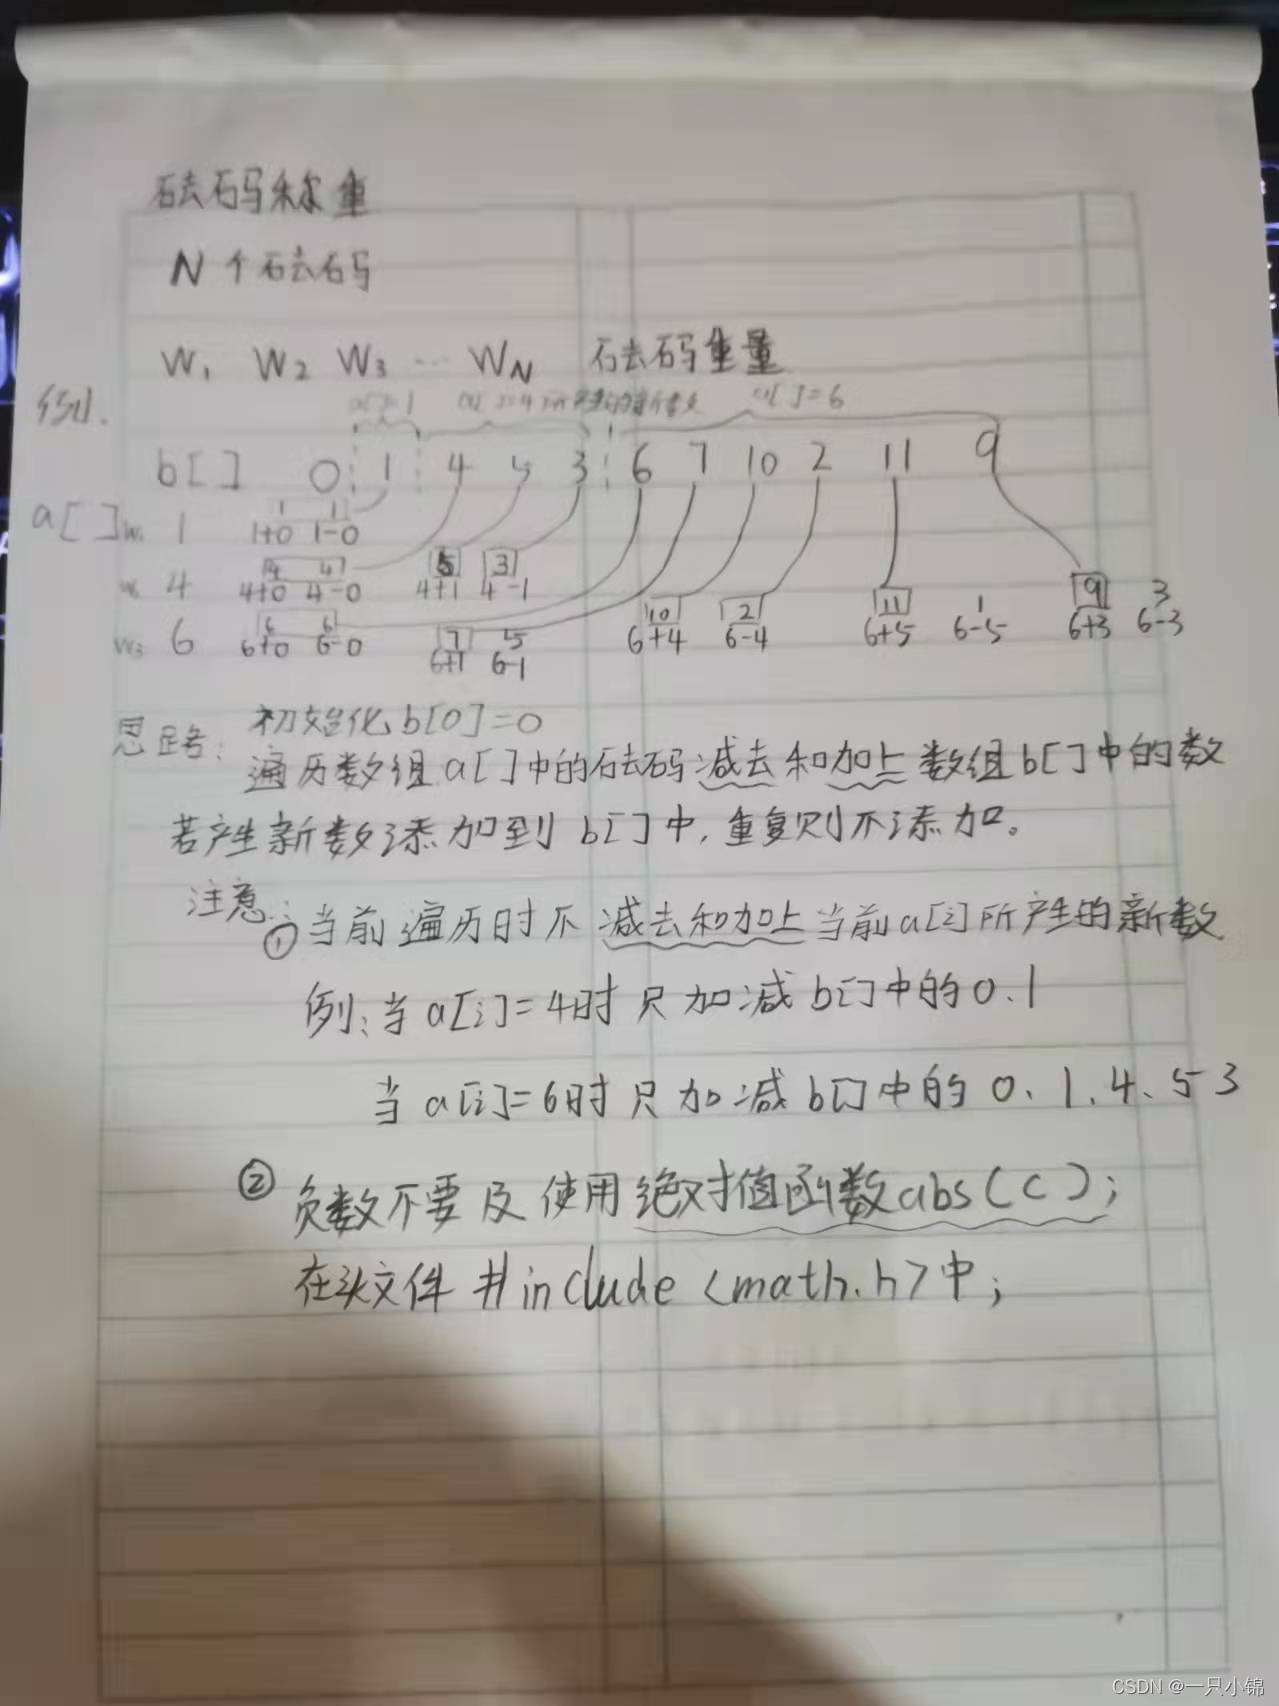 砝码称重
N 个砝码
W1 W2 W3 … WN 砝码重量
例.
a[ ]=1 a[ ]=4所产生的新数 a[ ]=6
b[ ] 0 1 4 5 3 6 7 10 2 11 9
1 1
a[ ] W1 1 1+0 1-0
4 4 5 3
W2 4 4+0 4-0 4+1 4-1
6 6 7 5 10 2 11 1 9 3
W3 6 6+0 6-0 6+1 6-1 6+4 6-4 6+5 6-5 6+3 6-3
思路: 初始化 b[0]=0
遍历数组a[]中的砝码减去和加上数组b[]中的数
若产生新数添加到 b[]中,重复则不添加。
注意:
①当前遍历时不减去和加上当前a[i]所产生的新数
例:当 a[i]=4时只加减 b[]中的0.1
当 a[i]=6时只加减 b[]中的 0、1、4、5 3
② 负数不要及使用绝对值函数abs(c);
在头文件 #include <math.h>中;
CSDN @一只小锦